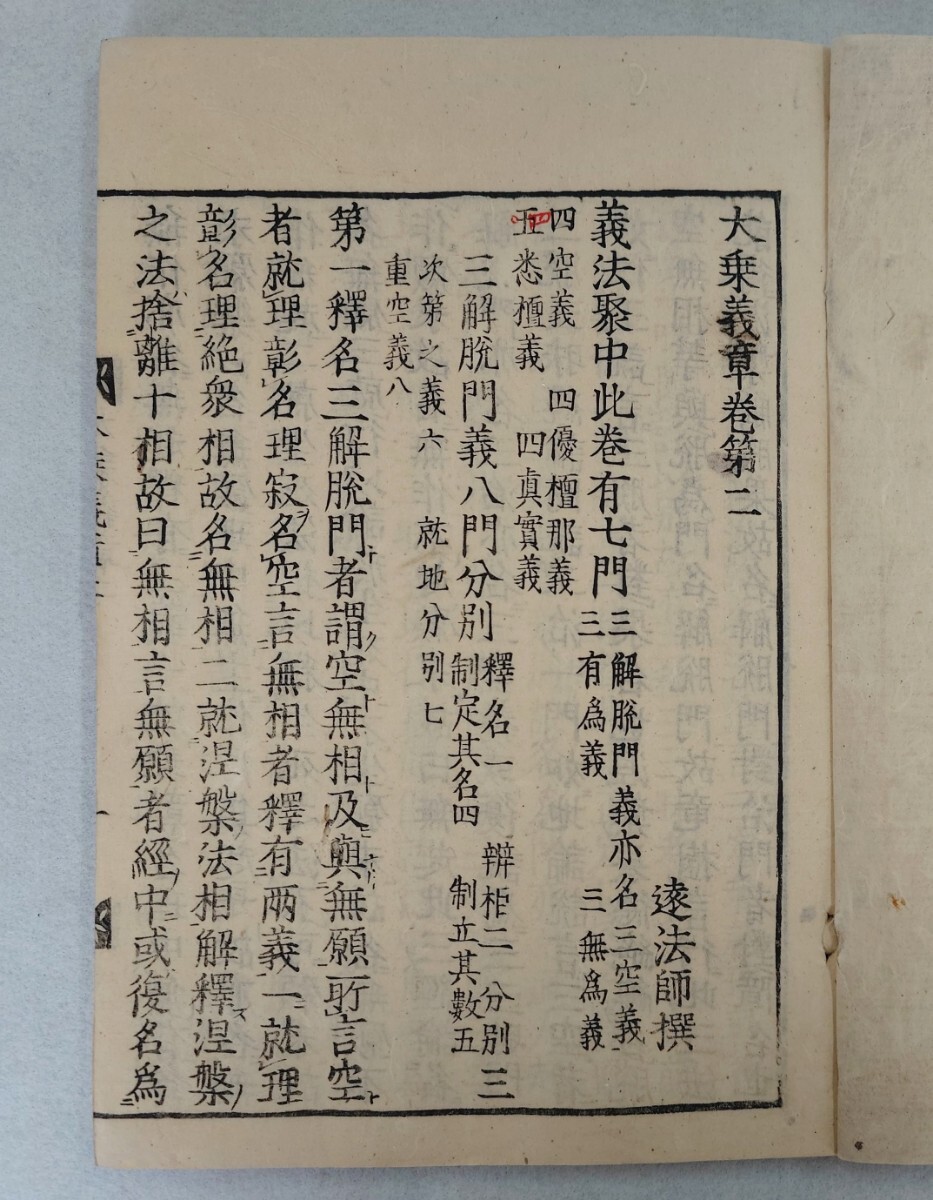 大乗義章卷第二
遠法師撰
義法聚中此卷有七門
三解脫門義亦名三空義
三有為義 三無為義
四空義 四優檀那義
五悉檀義 四真實義
三解脫門義八門分別
釋名一 辨相二 分別三
制定其名四 制立其數五
次第之義六 就地分別七
重空義八
第一釋名三解脫門者謂空無相及與無願所言空
者就理彰名理寂名空言無相者釋有兩義一就理
彰名理絕衆相故名無相二就涅槃法相解釋涅槃
之法捨離十相故曰無相言無願者經中或復名為